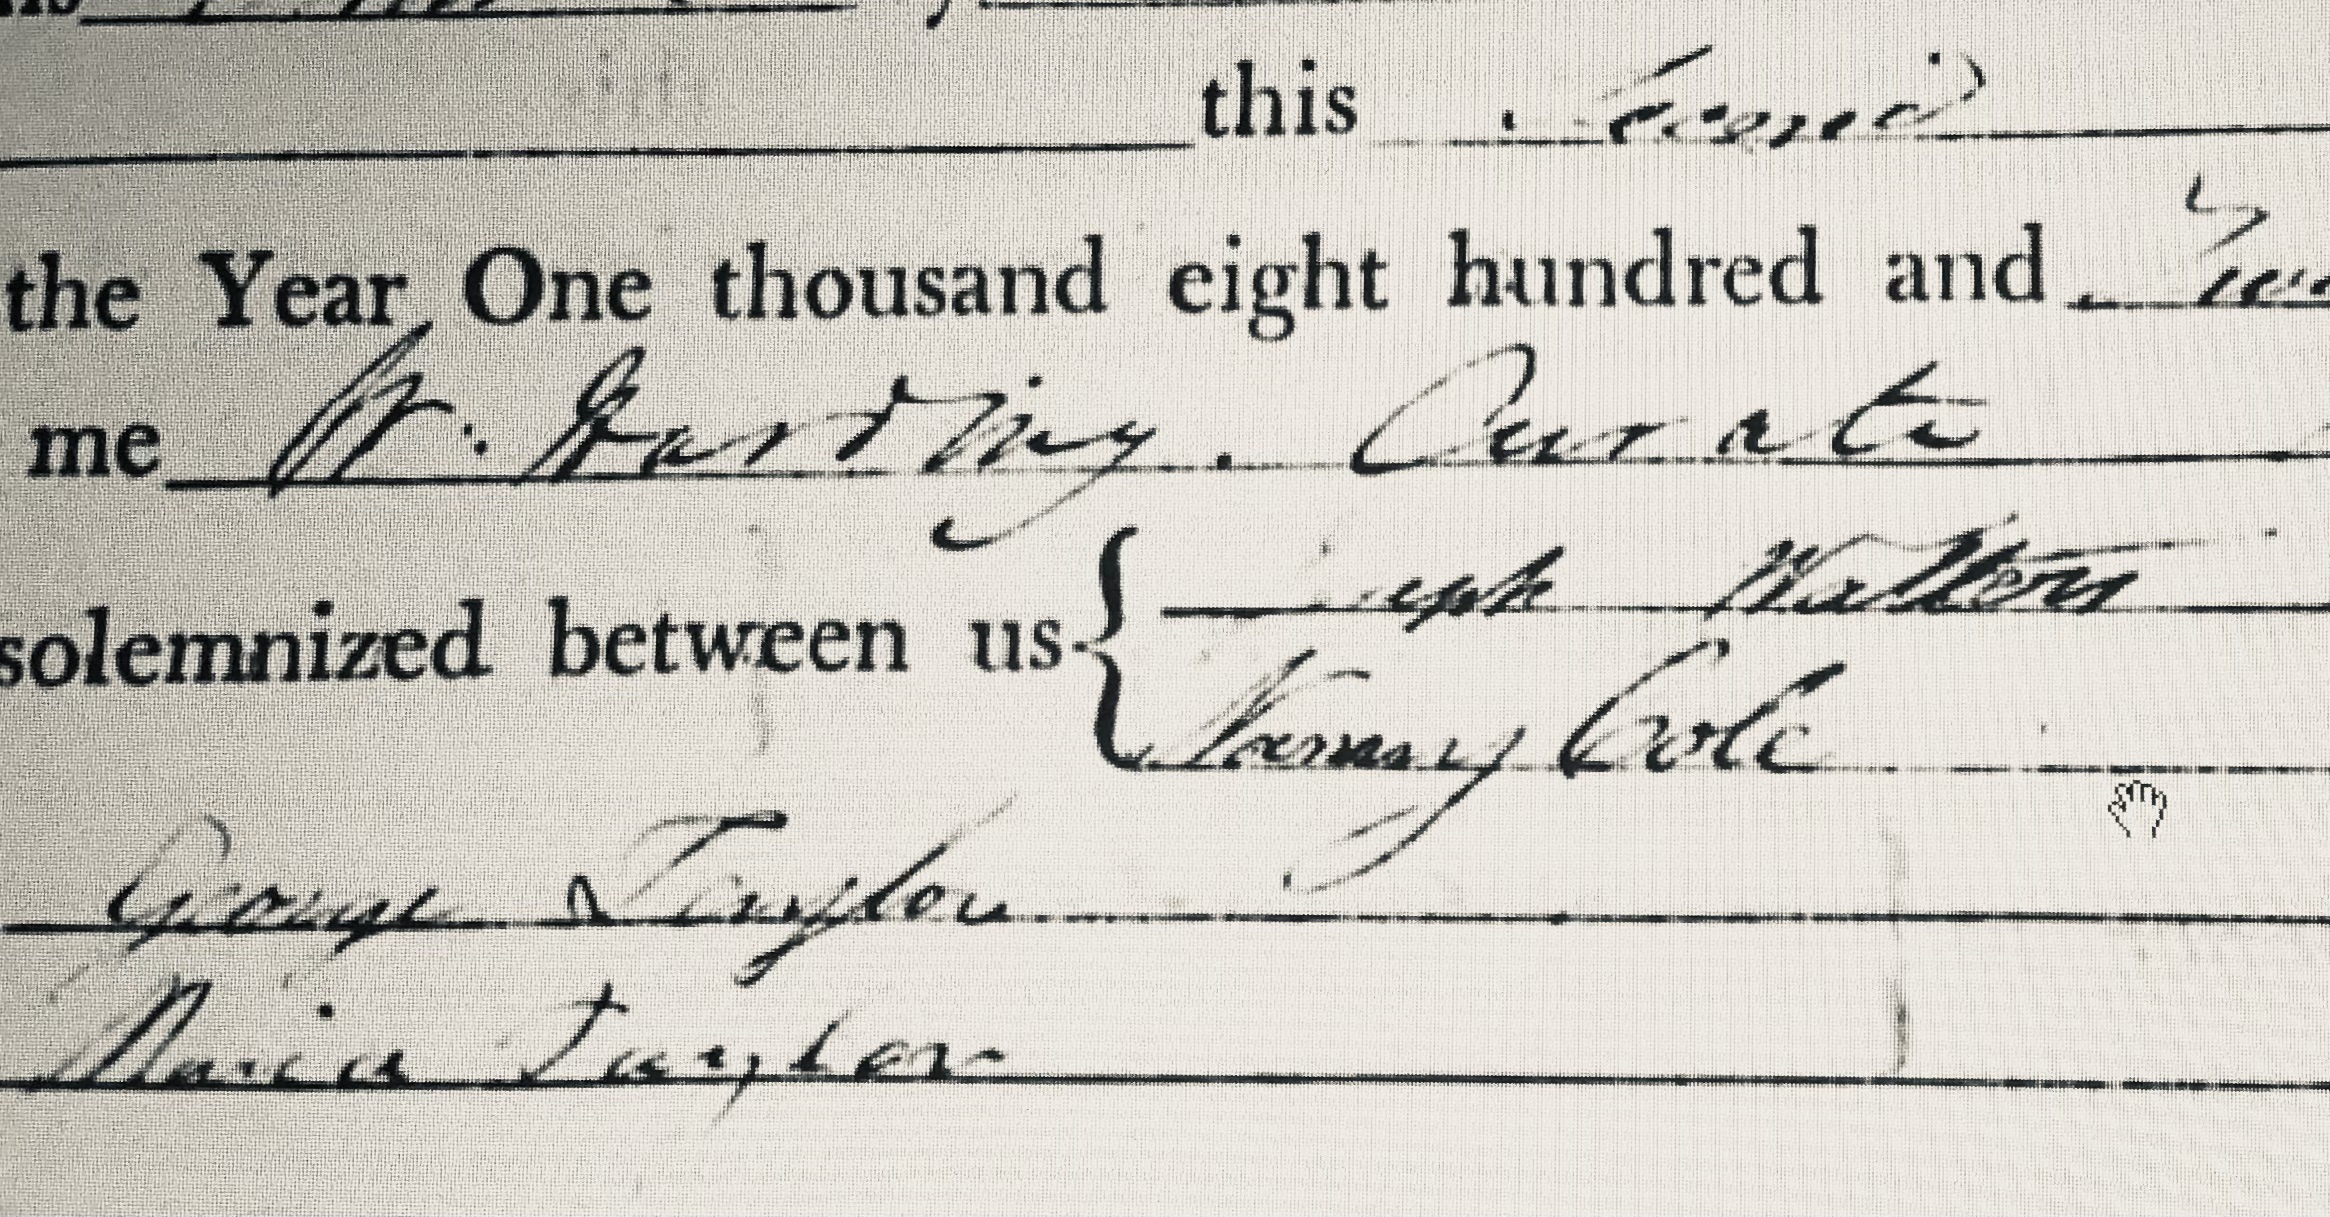 this Second
the Year One thousand eight hundred and
me W. Harding. Curate
solemnized between us { Joseph Walton
Cole
George Taylor
Maria Taylor